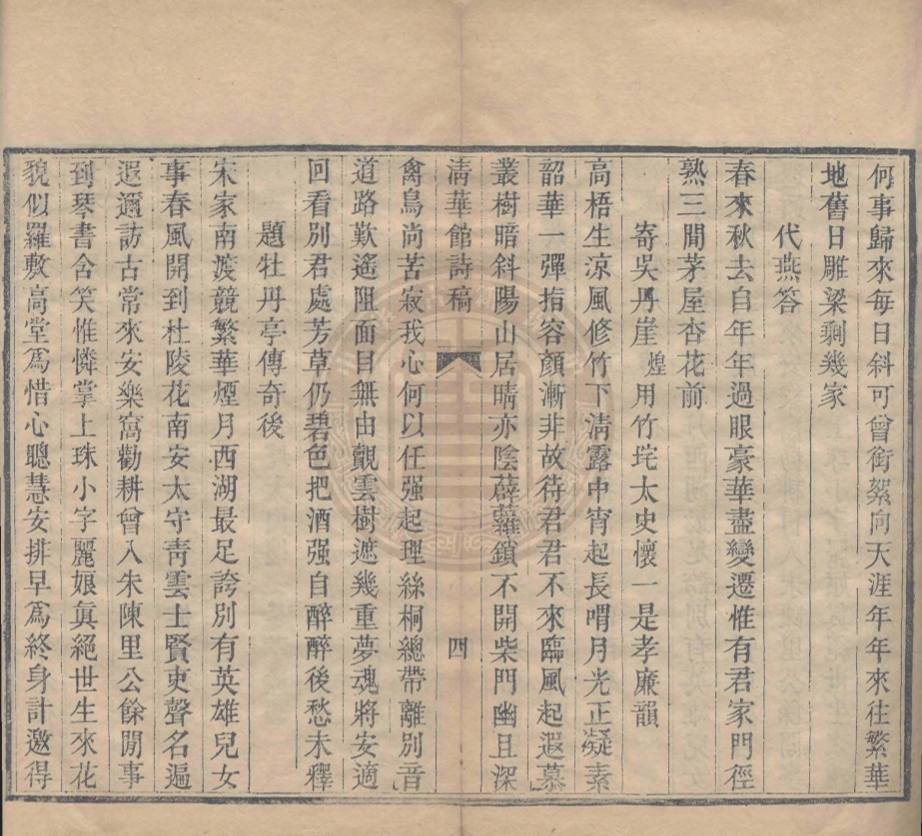 何事歸來每日斜可曾銜絮向天涯年年來往繁華
地舊日雕梁剩幾家
代燕答
春來秋去自年年過眼豪華盡變遷惟有君家門徑
熟三閒茅屋杏花前
寄吳丹崖煌用竹垞太史懷一是孝廉韻
高梧生涼風修竹下淸露中宵起長喟月光正凝素
韶華一彈指容顏漸非故待君君不來臨風起遐慕
叢樹暗斜陽山居晴亦陰薜蘿鎖不開柴門幽且深
淸華館詩稿 四
禽鳥尚苦寂我心何以任强起理絲桐總帶離別音
道路歎遙阻面目無由覿雲樹遮幾重夢魂將安適
回看別君處芳草仍碧色把酒强自醉醉後愁未釋
題牡丹亭傳奇後
宋家南渡競繁華煙月西湖最足誇別有英雄兒女
事春風開到杜陵花南安太守靑雲士賢吏聲名遍
遐邇訪古常來安樂窩勸耕曾入朱陳里公餘閒事
到琴書含笑惟憐掌上珠小字麗娘眞絕世生來花
貌似羅敷高堂爲惜心聰慧安排早爲終身計邀得